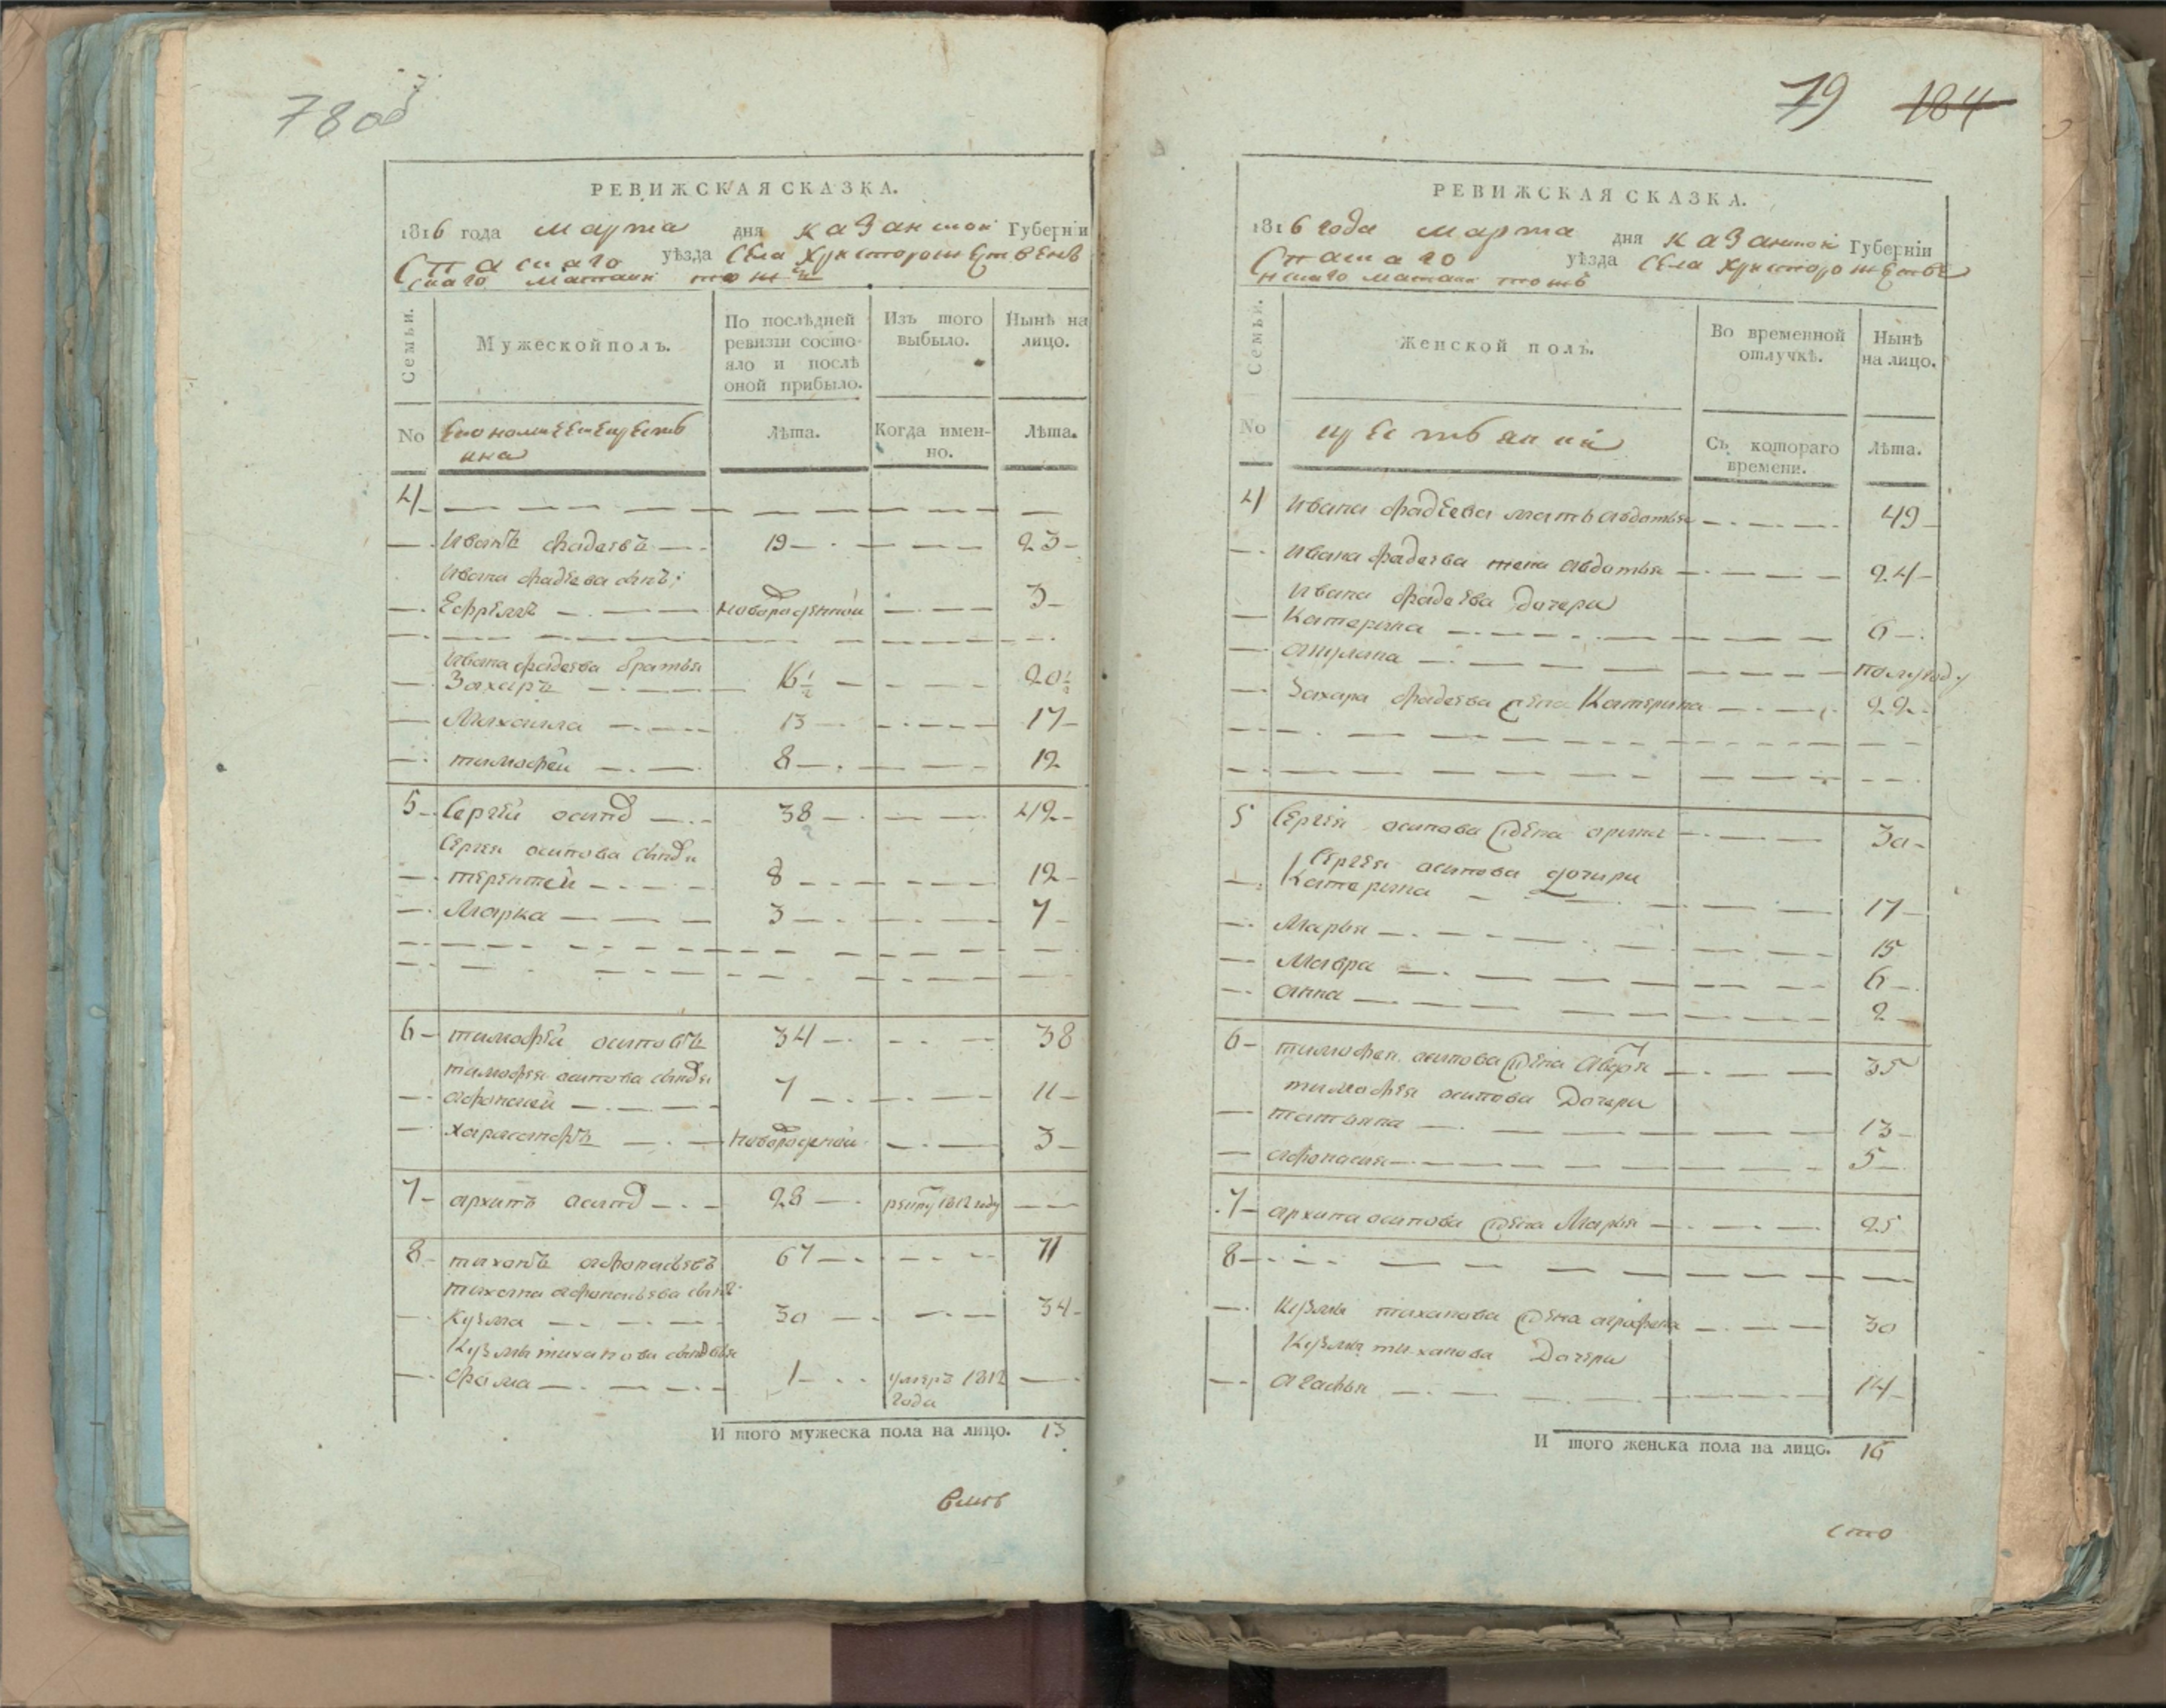 78 об
РЕВИЖСКАЯ СКАЗКА.
1816 года марта дня казанской Губернїи
Спаскаго уѣзда Села Христорожественъ
скаго матаки тожъ
Семьи.
Мужеской полъ.
По послѣдней ревизїи состояло и послѣ оной прибыло.
Изъ того выбыло.
Нынѣ на лицо.
No
Лѣта.
Когда именно.
Лѣта.
4
Иванъ фадеевъ 19 23
Ивана фадѣева сынъ
Ефремъ новорожденной 3
Ивана фадеева братья
Захаръ 16 1/2 20 1/2
Михаила 13 17
тимофей 8 12
5 Сергѣй осипов 38 42
Сергея осипова сынови
терентей 8 12
Марка 3 7
6 тимофѣй осиповъ 34 38
тимофея осипова сыновя
афонасей 7 11
харлампъ новорожденой 3
7 архипъ осипов 28 рекру 1812 году
8 тихонъ афонасьевъ 67 71
тихона афонасьева сынъ
Кузма 30 34
Кузмы тиханова сыновья
фома 1 умеръ 1812 года
И того мужеска пола на лицо. 13
79 184
РЕВИЖСКАЯ СКАЗКА.
1816 года марта дня казанской Губернїи
Спаскаго уѣзда Села Христорожестве
нскаго матаки тожъ
Семьи.
Женской полъ.
Во временной отлучкѣ.
Нынѣ на лицо.
No
крестьянки
Съ котораго времени.
Лѣта.
4 Ивана фадѣева мать авдотья 49
Ивана фадеева жена авдотья 24
Ивана фадеева дочери
Катерина 6
акулина полугоду
Захара фадеева жена Катерина 22
5 Сергѣя осипова жена арина 30
Сергѣя осипова дочири
Катерина 17
Марья 15
Мавра 6
анна 2
6 тимофея осипова жена 35
тимофея осипова Дочери
татьяна 13
афонасия 5
7 архипа осипова жена Марья 25
8
Кузмы тиханова жена аграфена 30
Кузмы тиханова Дочери
агафья 14
И того женска пола на лицо. 16
сто